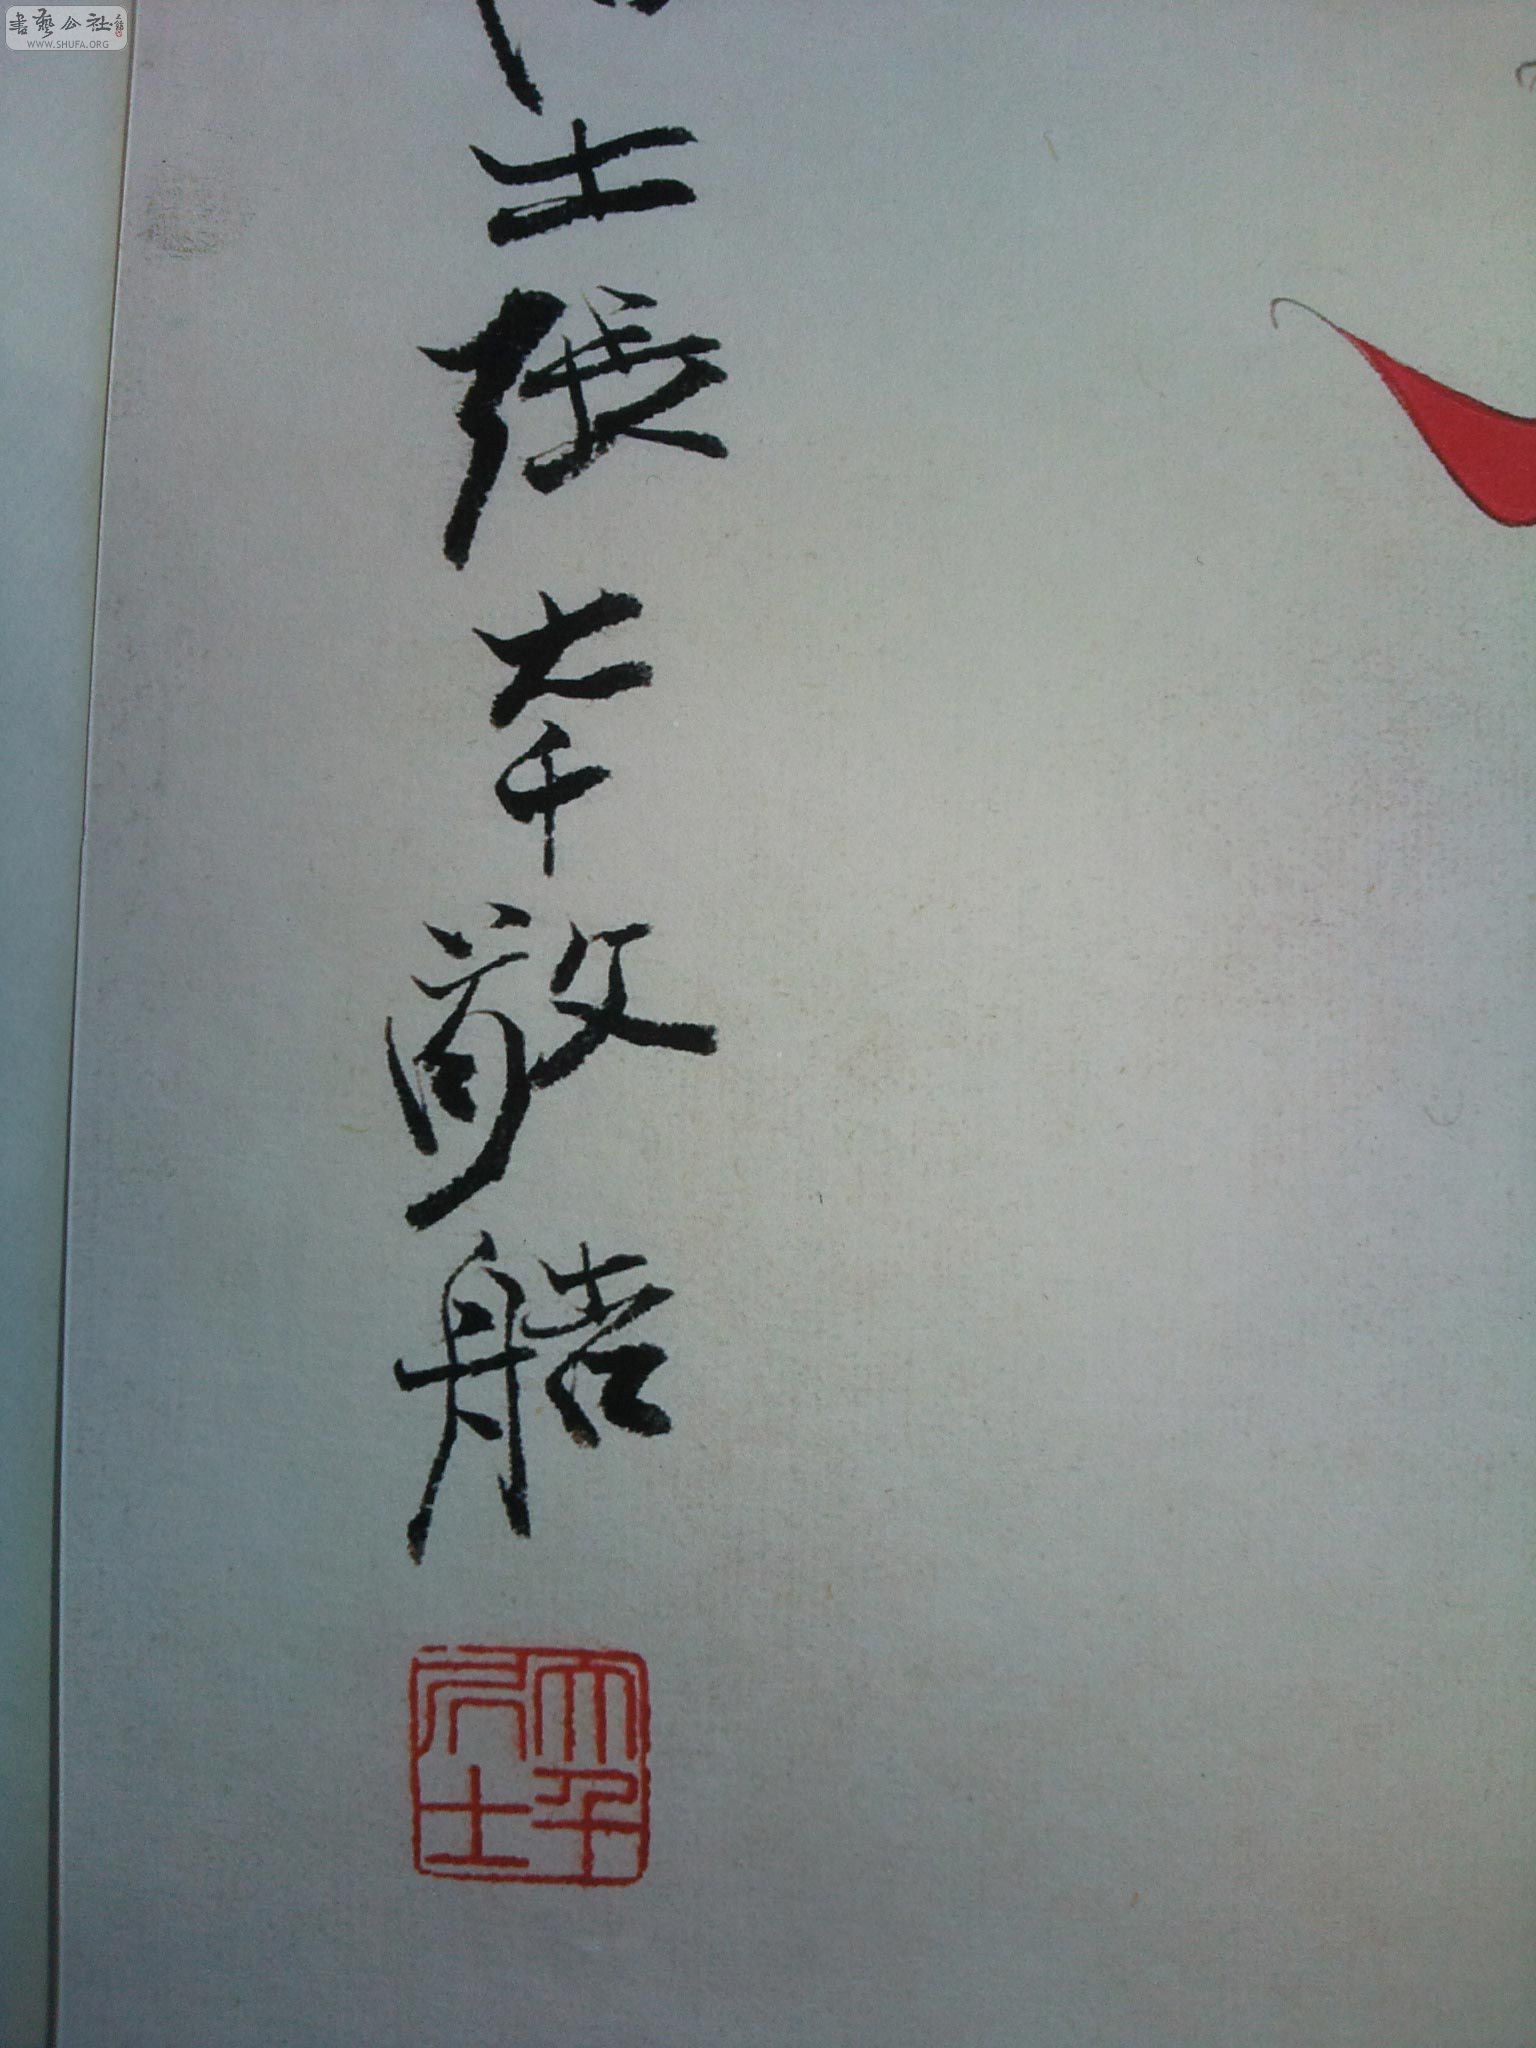 書藝公社
WWW.SHUFA.ORG
士張大千敬艁
大千
凥士